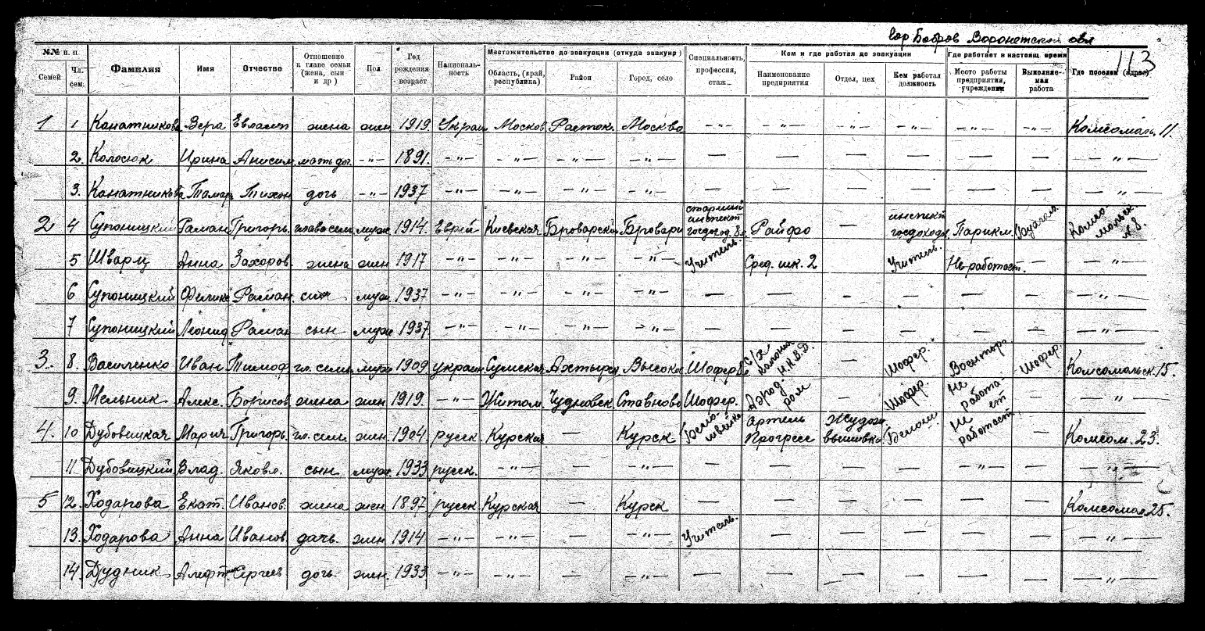 гор Бобров Воронежской обл
113
№№ п. п.
Семей
Чл. сем.
Фамилия
Имя
Отчество
Отношение к главе семьи (жена, сын и др)
Пол
Год рождения возраст
Националь-ность
Местожительство до эвакуации (откуда эвакуир)
Область, (край, республика)
Район
Город, село
Специальность, профессия, стаж
Кем и где работал до эвакуации
Наименование предприятия
Отдел, цех
Кем работал должность
Где работает в настоящ. время
Место работы предприятия, учреждения
Выполняе-мая работа
Где поселен (адрес)
1 1 Канатникова Вера жена жен 1919 Украи Москов Москва Комсомольс. 11.
2. Колосюк Ирина Анисим. мать до. -"- 1891. -"- -"- -"- -"- — — — — — — -"-
3. Канатникова Тамар Тихон дочь -"- 1937 -"- -"- -"- -"- — — — — — — -"-
2 4 Супоницкий Раман Григорь. глава сем. муж 1914. Еврей Киевская Броварской Бровари старший инспект госдоход. Райфо — инспект госдохода Парикм. Комсо-мольск. 8.
5 Шварц Анна Захоров. жена жен 1917 -"- -"- -"- -"- Учитель. Сред. шк. 2 — Учитель. Не работает. — -"-
6 Супоницкий Раман. сын муж 1937 -"- -"- -"- -"- — — — — — — -"-
7 Супоницкий Леонид Раман сын муж 1937 -"- -"- -"- -"- — — — — — — -"-
3. 8. Василенко Иван Тимоф гл. семьи муж 1909 украин Сумская Ахтырск Высоко Шофер С/х колония Н.К.В.Д. — Шофер. Воентор. Шофер. Комсомольск. 15.
9. Мельник Алекс. Борисов жена жен 1919. -"- Житом. Чудновск Ставнов Шофер. — Шофер. Не работает — -"-
4. 10 Дубовицкая Мария Григорь. гл. сем. жен. 1904 русск. Курская — Курск Бело-швейка Артель Прогресс Худож. вышивка Белош. Не работает — Комсом. 23.
11. Дубовицкий Влад. Яковл. сын муж 1933 русск. -"- — -"- — — — — — — -"-
5 12. Ходарова Екат. Иванов. жена жен 1897 русск Курская — Курск — — — — — — Комсомол 25.
13. Ходарова Анна Иванов. дочь. жен 1914 -"- -"- — -"- Учитель. — — — — — -"-
14. Дудник Сергеев дочь жен. 1933 -"- -"- — -"- — — — — — — -"-